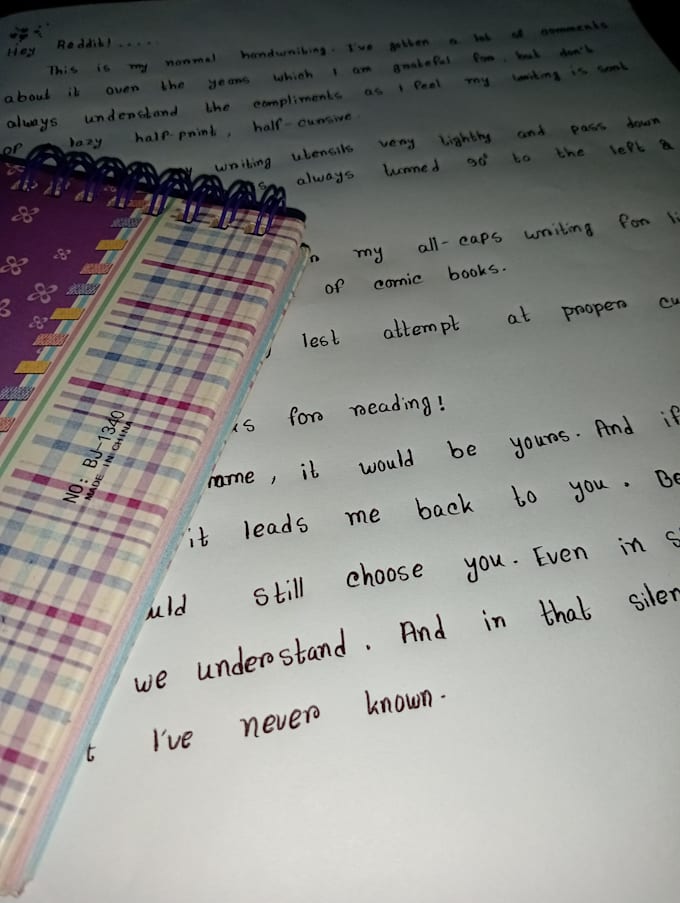 Hey Reddit.....
This is my normal handwriting. I've gotten a lot of comments
about it over the years which I am grateful for, but don't
always understand the compliments as I feel my writing is sort
of lazy half-print, half-cursive.
writing utensils very lightly and pass down
always turned 90° to the left &
my all-caps writing for li
of comic books.
lest attempt at proper cu
ks for reading!
name, it would be yours. And if
it leads me back to you. Be
uld still choose you. Even in s
we understand. And in that silen
t I've never known.
NO: BJ-1340
MADE IN CHINA